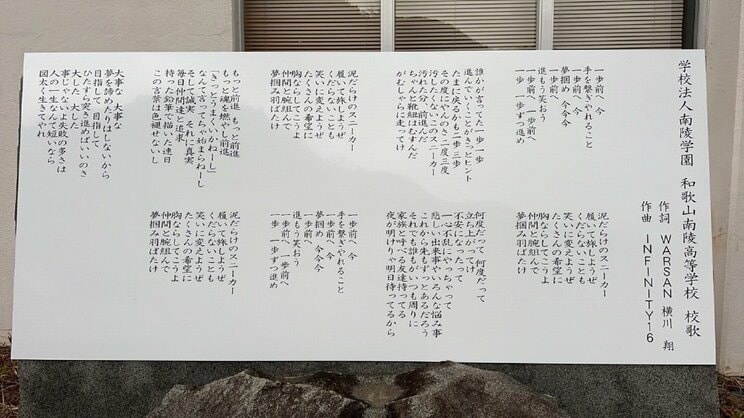 学校法人南陵学園　和歌山南陵高等学校　校歌
作詞　WARSAN 横川 翔
作曲　INFINITY16
一歩前へ 今
手を繋ぎやれること
一歩前へ 今
夢掴め 今今今
進もう笑おう
一歩前へ 一歩前へ
一歩 一歩ずつ進め
誰かが言ってた 一歩一歩
進んでいくことがきっとヒント
たまに戻るかも 二歩 三歩
その度にやんのさ 二度 三度
汚したくないこのスニーカー
汚れた分、前進だ
ちゃんと靴紐はむすんだ
がむしゃらに走ってけ
泥だらけのスニーカー
履いて旅しようぜ
くだらないことも
笑いに変えようぜ
たくさんの希望に
胸ならしてこうよ
仲間と腕組んで
夢掴み羽ばたけ
もっと前進 もっと前進
もっと魂を燃やし前進
「きっとうまいかねーし」
なんて言ってちゃ始まらねーし
そして誠実 それに真実
毎日仲間達と追求
持った鉛筆で描いた連日
この言葉は色褪せないし
大事な 大事な
夢を諦めたりはしないから
目指して 目指して
ひたすら突き進めばいいのさ
大した 大した
事じゃないよ失敗の多さは
人の一生なんて短いなら
図太く生きてやれ
泥だらけのスニーカー
履いて旅しようぜ
くだらないことも
笑いに変えようぜ
たくさんの希望に
胸ならしてこうよ
仲間と腕組んで
夢掴み羽ばたけ
何度だって 何度だって
立ち上がってけ
不安になったって
一心不乱にやっちゃって
悲しい出来事やいろんな悩み事
これから先もずっとあるだろう
それでも誰もがいつも周りに
家族と呼べる友達持ってる
夜が明けりゃ明日待ってるから
一歩前へ 今
手を繋ぎやれること
一歩前へ 今
夢掴め 今今今
進もう笑おう
一歩前へ 一歩前へ
一歩 一歩ずつ進め
泥だらけのスニーカー
履いて旅しようぜ
くだらないことも
笑いに変えようぜ
たくさんの希望に
胸ならしてこうよ
仲間と腕組んで
夢掴み羽ばたけ